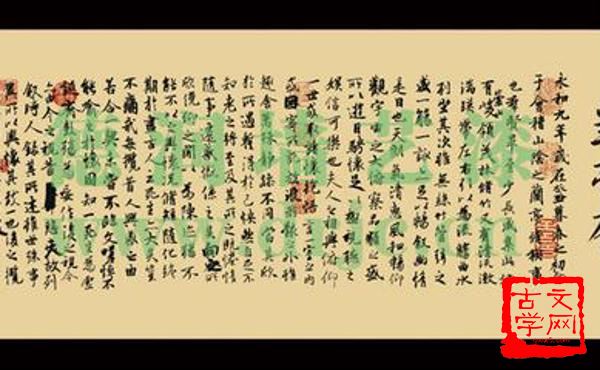 永和九年歲在癸丑暮春之初會
于會稽山陰之蘭亭脩禊事
也群賢畢至少長咸集此地
有崇山峻領茂林脩竹又有清流激
湍暎帶左右引以為流觴曲水
列坐其次雖無絲竹管弦之
盛一觴一詠亦足以暢敘幽情
是日也天朗氣清惠風和暢仰
觀宇宙之大俯察品類之盛
所以遊目騁懷足以極視聽之
娛信可樂也夫人之相與俯仰
一世或取諸懷抱悟言一室之內
或因寄所託放浪形骸之外雖
趣舍萬殊靜躁不同當其欣
於所遇蹔得於己怏然自足不
知老之將至及其所之既惓情
隨事遷感慨係之矣向之所
欣俛仰之閒以為陳迹猶不
能不以之興懷況脩短隨化終
期於盡古人云死生亦大矣豈
不痛哉每攬昔人興感之由
若合一契未嘗不臨文嗟悼不
能喻之於懷固知一死生為虛
誕齊彭殤為妄作後之視今
亦由今之視昔悲夫故列
敘時人錄其所述雖世殊事
異所以興懷其致一也後之攬
德润墙艺漆
古文学网